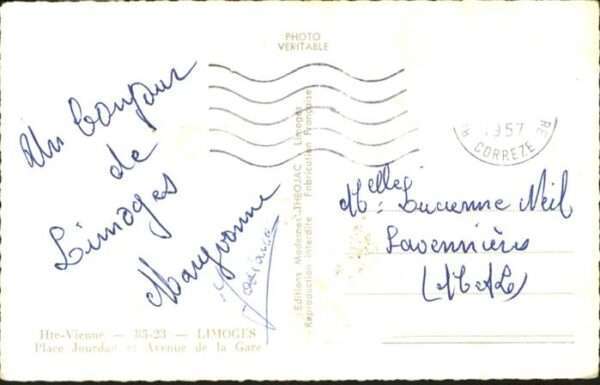 PHOTO
VERITABLE
Un bonjour
de
Limoges
Maryvonne
Hte-Vienne — 83-23 — LIMOGES
Place Jourdan et Avenue de la Gare
Editions Modernes THEOJAC Limoges
Reproduction interdite Fabrication Française
1957
CORREZE
Melle: Lucienne Neil
Savennières
(M&L)